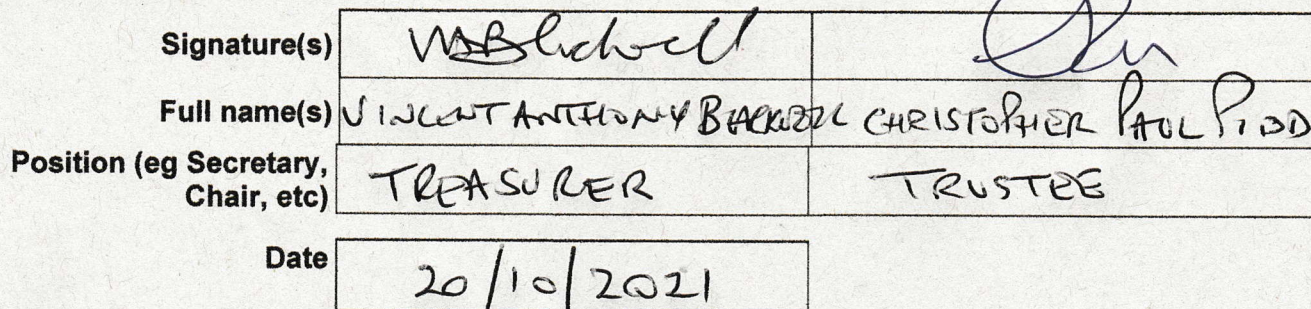 Signature(s)
Full name(s) VINCENT ANTHONY BLACKWELL CHRISTOPHER PAUL PIDD
Position (eg Secretary, Chair, etc) TREASURER TRUSTEE
Date 20/10/2021